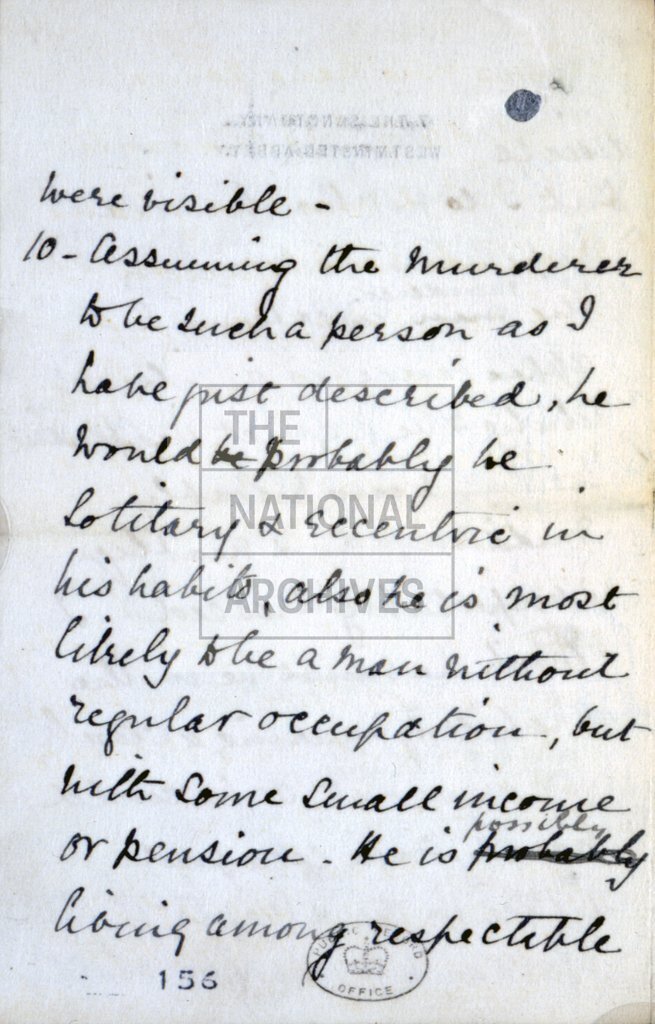 were visible -
10 - Assuming the Murderer
to be such a person as I
have just described, he
would be probably be
Solitary & eccentric in
his habits, also he is most
likely to be a man without
regular occupation, but
with some small income
or pension. He is probably possibly
living among respectable
156
THE
NATIONAL
ARCHIVES
PUBLIC RECORD
OFFICE